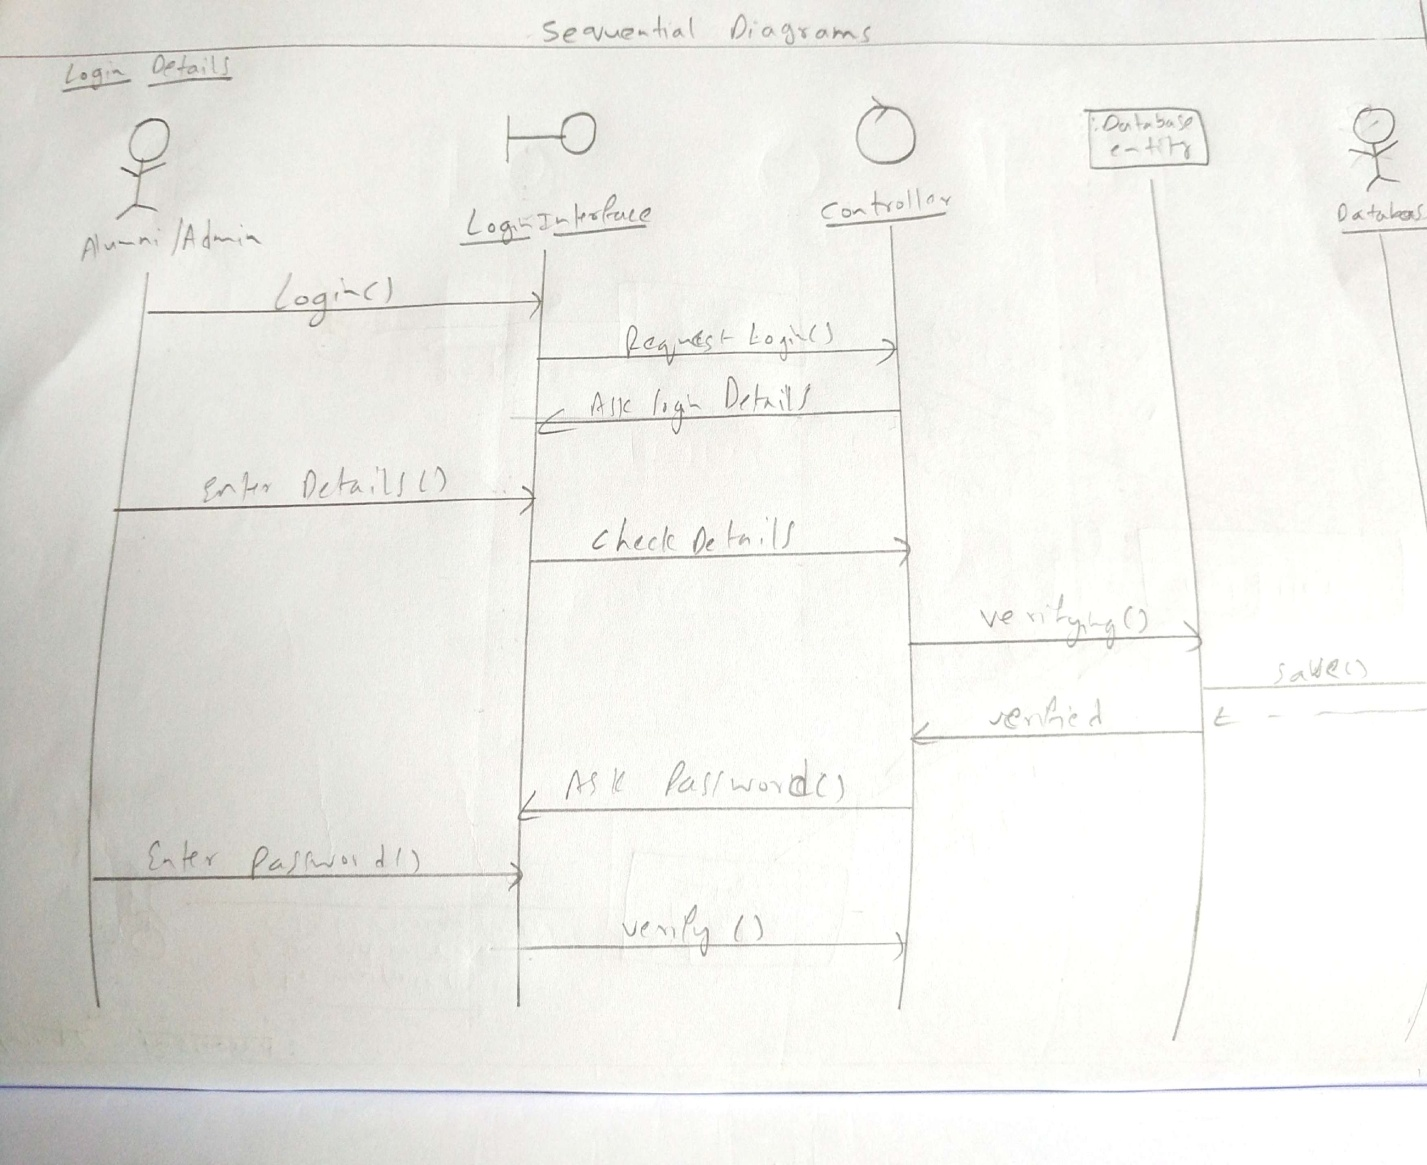 Sequential Diagrams
Login Details
:Database
entity
Alumni/Admin
Login Interface
Controller
Login()
Request Login()
Ask login Details
Enter Details()
Check Details
verifying()
save()
verified
Ask Password()
Enter Password()
verify ()